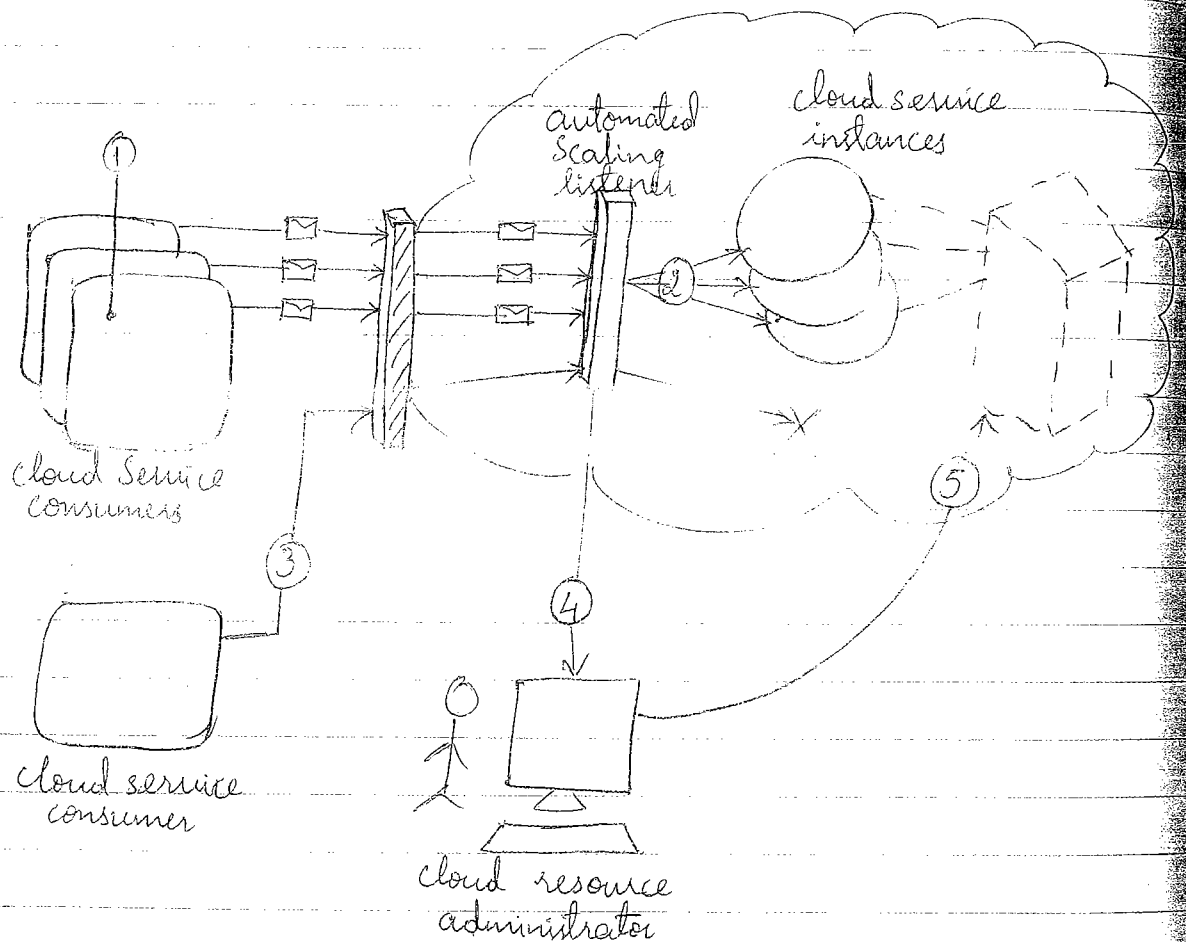 automated
Scaling
listener
cloud service
instances
1
2
cloud Service
consumers
3
4
5
cloud service
consumer
cloud resource
administrator